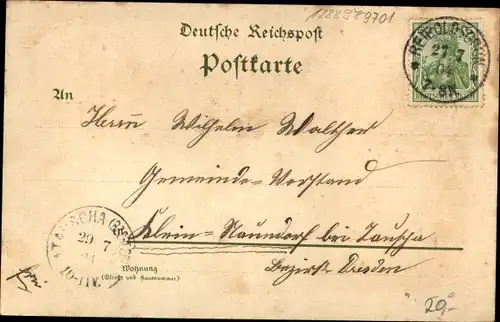 1288389701
Deutsche Reichspost
Postkarte
27 7
An
Herrn Wilhelm Walther
Gemeinde-Vorstand
Klein-Naundorf bei Tauscha
Bezirk Dresden
TAUSCHA
29 7
10-11V.
Wohnung
(Straße und Hausnummer)
frei
29.-